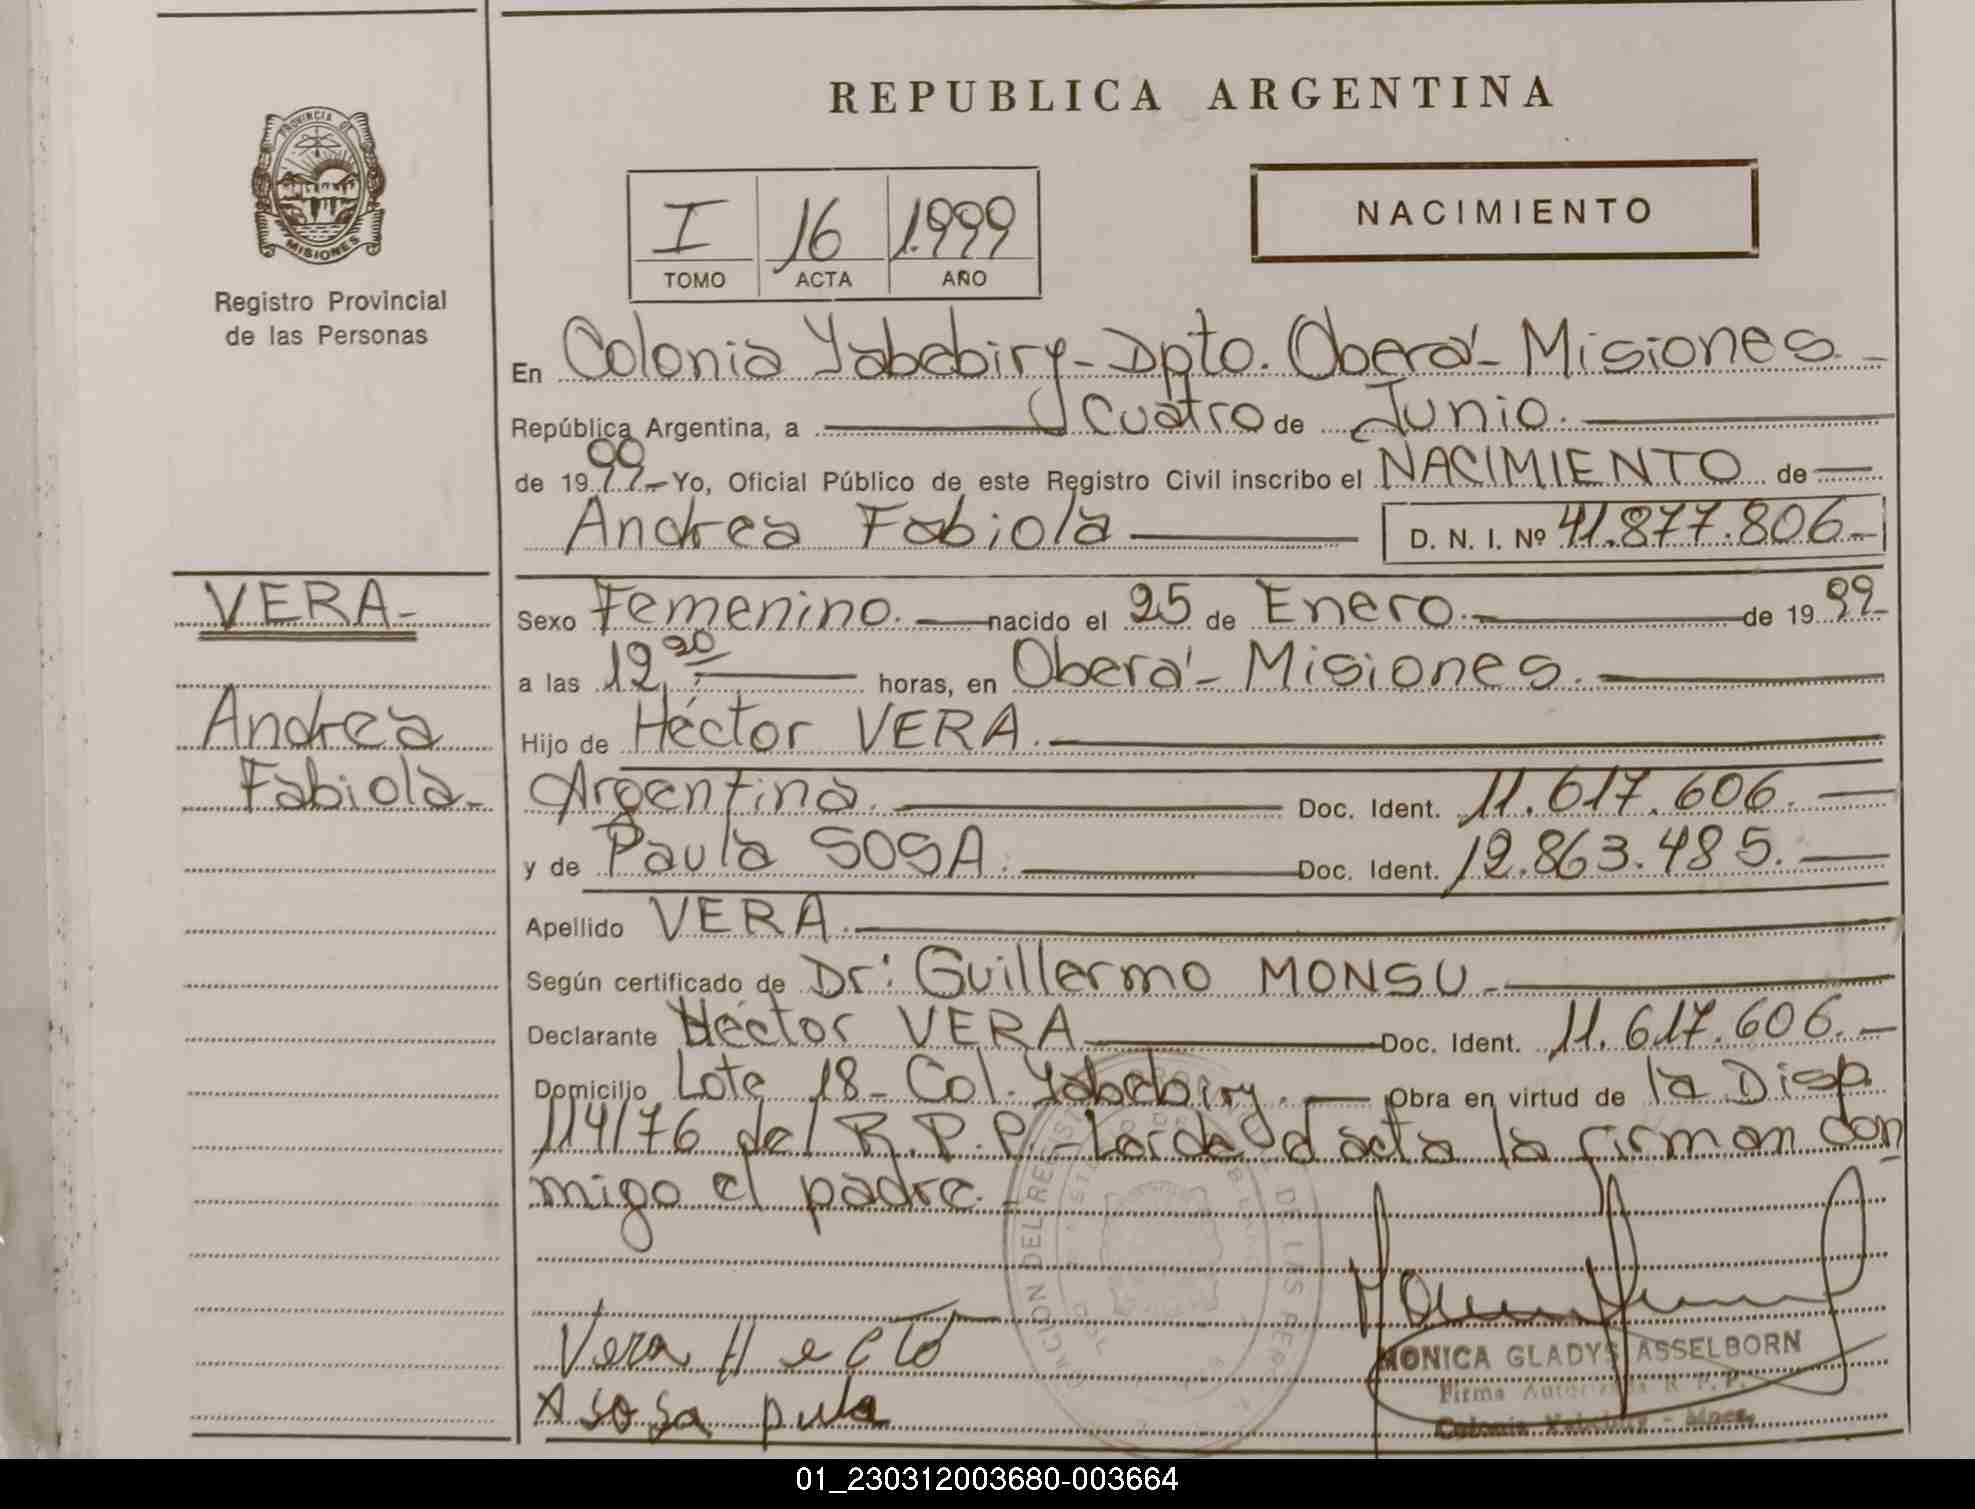 REPUBLICA ARGENTINA
PROVINCIA DE
MISIONES
Registro Provincial
de las Personas
I 16 1.999
TOMO ACTA AÑO
NACIMIENTO
En Colonia Yabebiry-Dpto. Oberá-Misiones.-
República Argentina, a Cuatro de Junio.
de 1999.- Yo, Oficial Público de este Registro Civil inscribo el NACIMIENTO de
Andrea Fabiola D. N. I. Nº 41.877.806.-
VERA-
Sexo Femenino. nacido el 25 de Enero. de 1999-
a las 12 20 horas, en Oberá-Misiones.
Andrea
Fabiola-
Hijo de Héctor VERA.
Argentina. Doc. Ident. 11.617.606.
y de Paula SOSA. Doc. Ident. 12.863.485.
Apellido VERA.
Según certificado de Dr: Guillermo MONSU-
Declarante Héctor VERA Doc. Ident. 11.617.606.-
Domicilio Lote 18-Col. Yabebiry. Obra en virtud de la Disp
114/76 del R.P.P.- Leída el acta la firman con
migo el padre.-
Vera Hecto
A sosa pula
MONICA GLADYS ASSELBORN
Firma Autorizada R. P. P.
Colonia Yabebiry - Mnes.
01_230312003680-003664